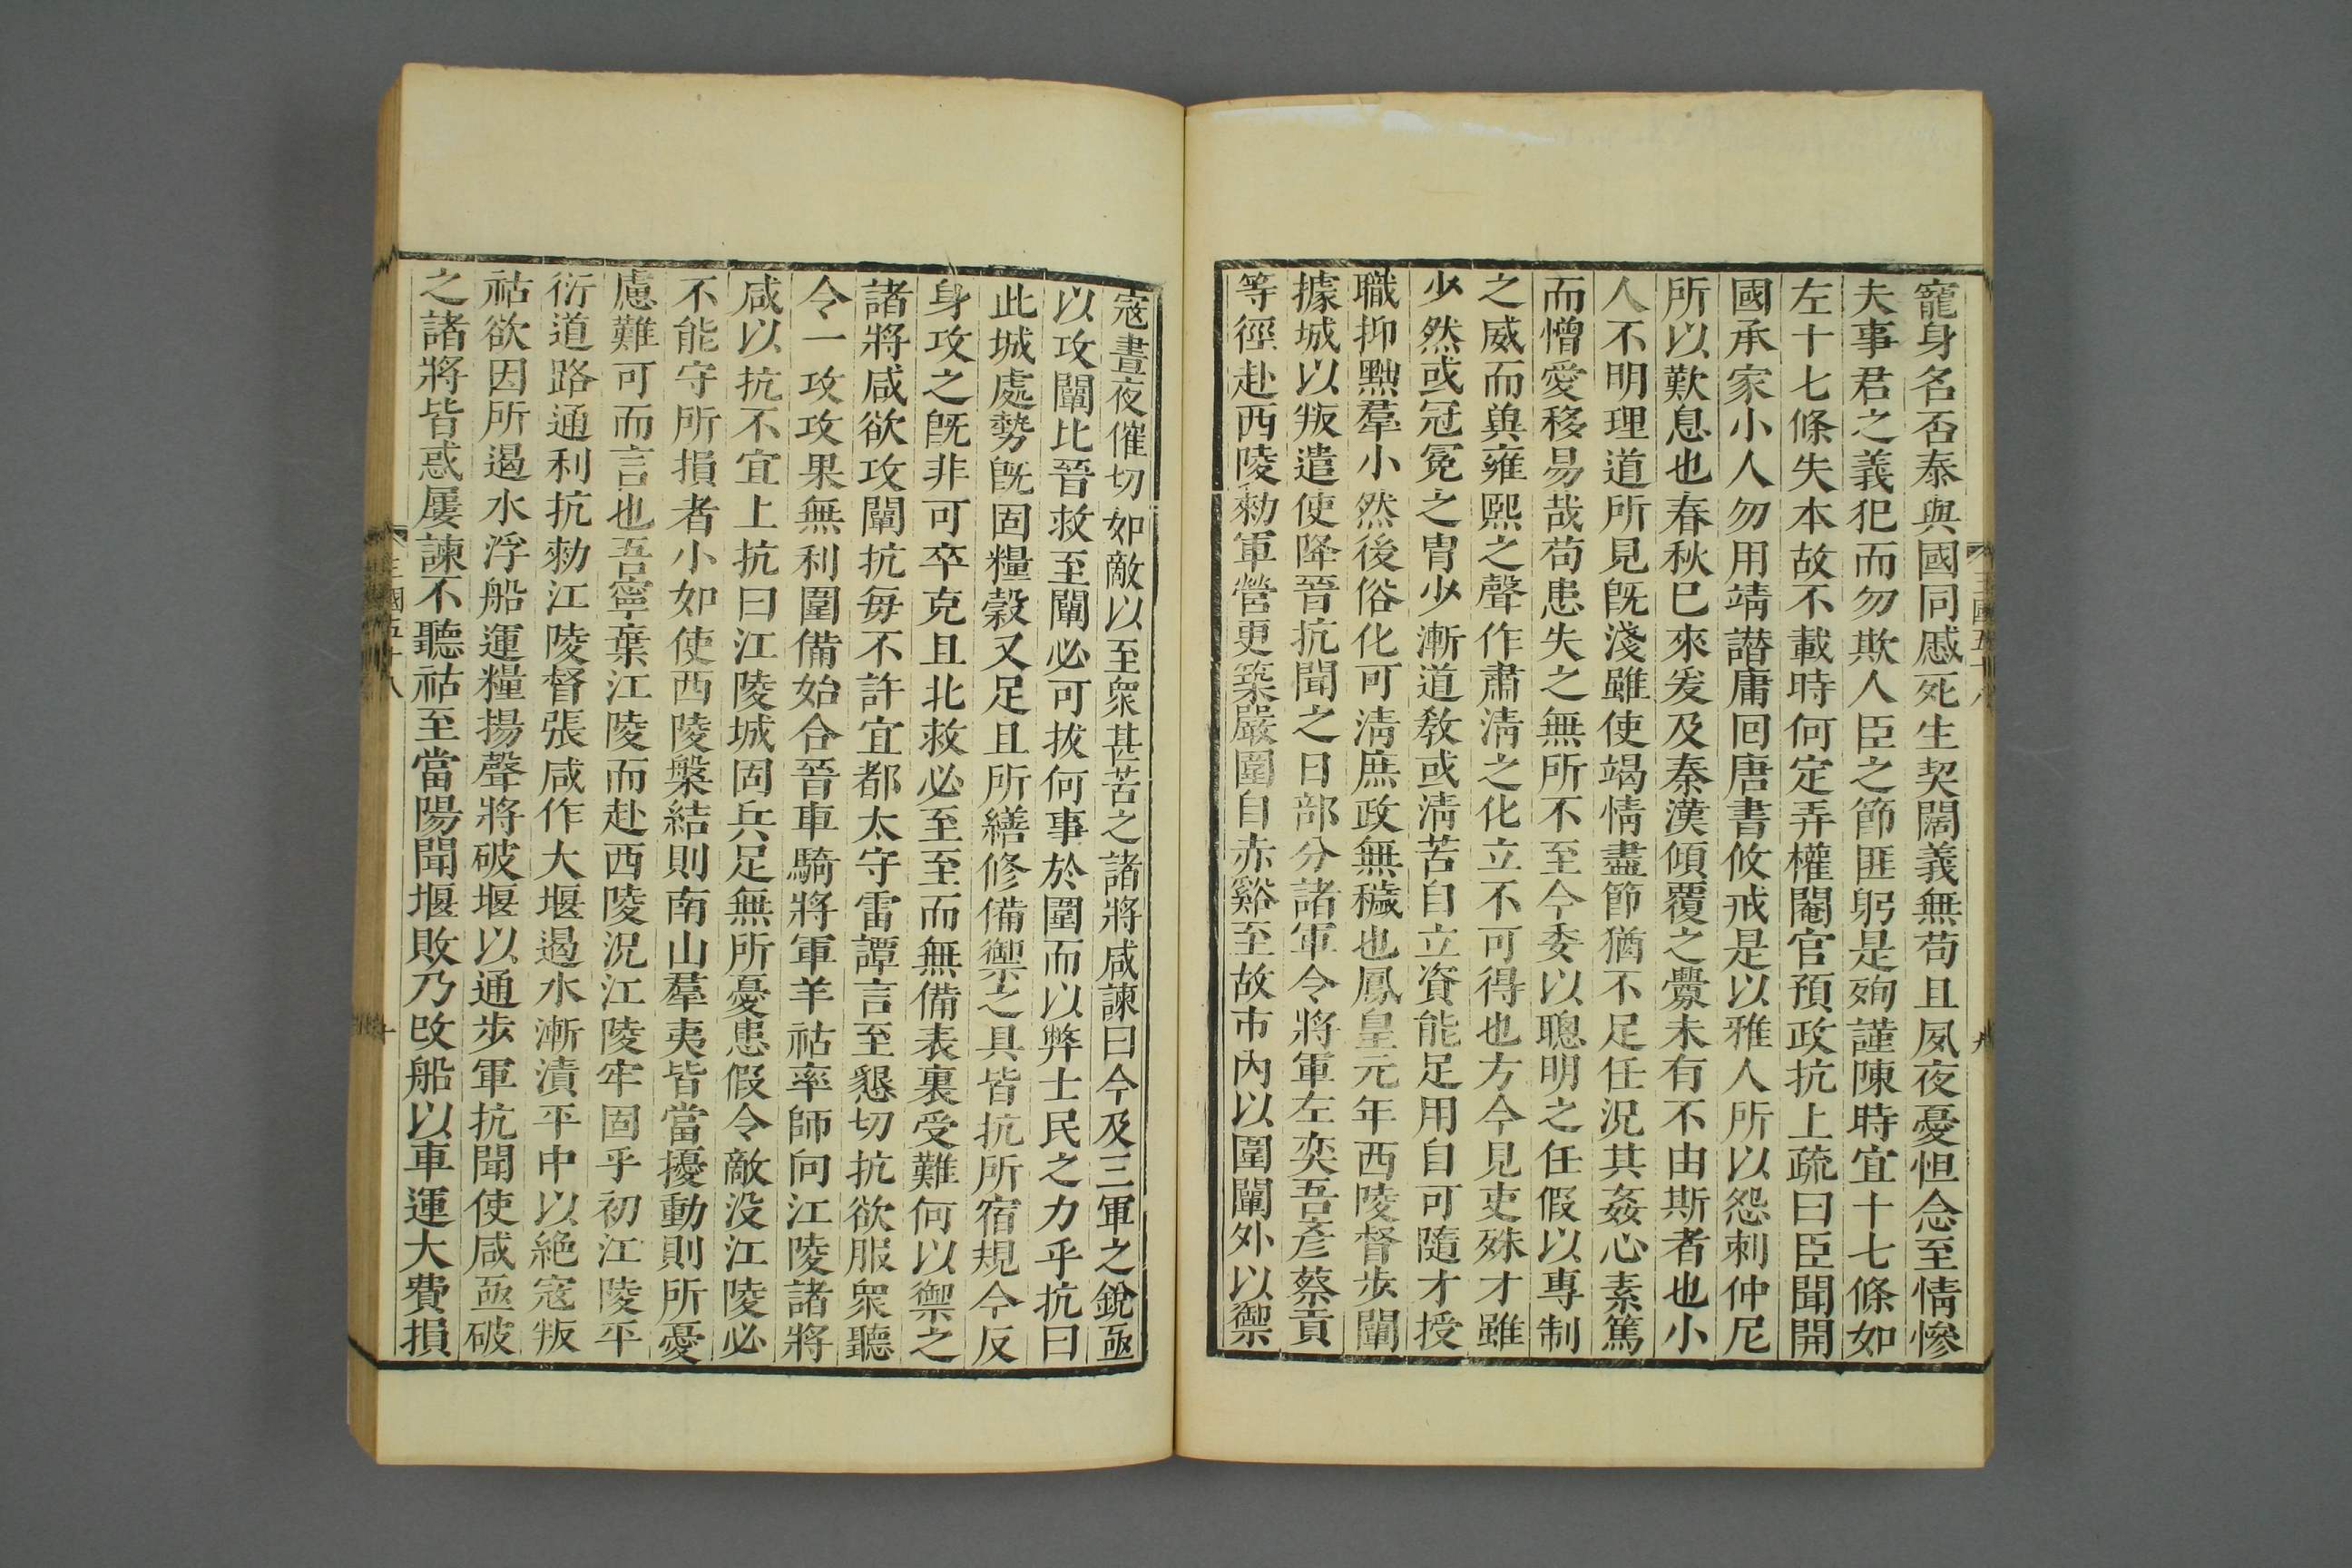 寵身名否泰與國同慼死生契闊義無苟且夙夜憂怛念至情慘
夫事君之義犯而勿欺人臣之節匪躬是殉謹陳時宜十七條如
左十七條失本故不載時何定弄權閹官預政抗上疏曰臣聞開
國承家小人勿用靖譖庸回唐書攸戒是以雅人所以怨刺仲尼
所以歎息也春秋已來爰及秦漢傾覆之釁未有不由斯者也小
人不明理道所見旣淺雖使竭情盡節猶不足任況其姦心素篤
而憎愛移易哉苟患失之無所不至今委以聰明之任假以專制
之威而兾雍熙之聲作肅淸之化立不可得也方今見吏殊才雖
少然或冠冕之胄少漸道敎或淸苦自立資能足用自可隨才授
職抑黜羣小然後俗化可淸庶政無穢也鳳皇元年西陵督步闡
據城以叛遣使降晉抗聞之日部分諸軍令將軍左奕吾彥蔡貢
等徑赴西陵勑軍營更築嚴圍自赤谿至故市內以圍闡外以禦
三國五十八
九
寇晝夜催切如敵以至衆甚苦之諸將咸諫曰今及三軍之銳亟
以攻闡比晉救至闡必可拔何事於圍而以弊士民之力乎抗曰
此城處勢旣固糧穀又足且所繕修備禦之具皆抗所宿規今反
身攻之旣非可卒克且北救必至至而無備表裏受難何以禦之
諸將咸欲攻闡抗每不許宜都太守雷譚言至懇切抗欲服衆聽
令一攻攻果無利圍備始合晉車騎將軍羊祜率師向江陵諸將
咸以抗不宜上抗曰江陵城固兵足無所憂患假令敵没江陵必
不能守所損者小如使西陵槃結則南山羣夷皆當擾動則所憂
慮難可而言也吾寧棄江陵而赴西陵況江陵牢固乎初江陵平
衍道路通利抗勑江陵督張咸作大堰遏水漸漬平中以絶寇叛
祜欲因所遏水浮船運糧揚聲將破堰以通步軍抗聞使咸亟破
之諸將皆惑屢諫不聽祜至當陽聞堰敗乃改船以車運大費損
三國五十八
十